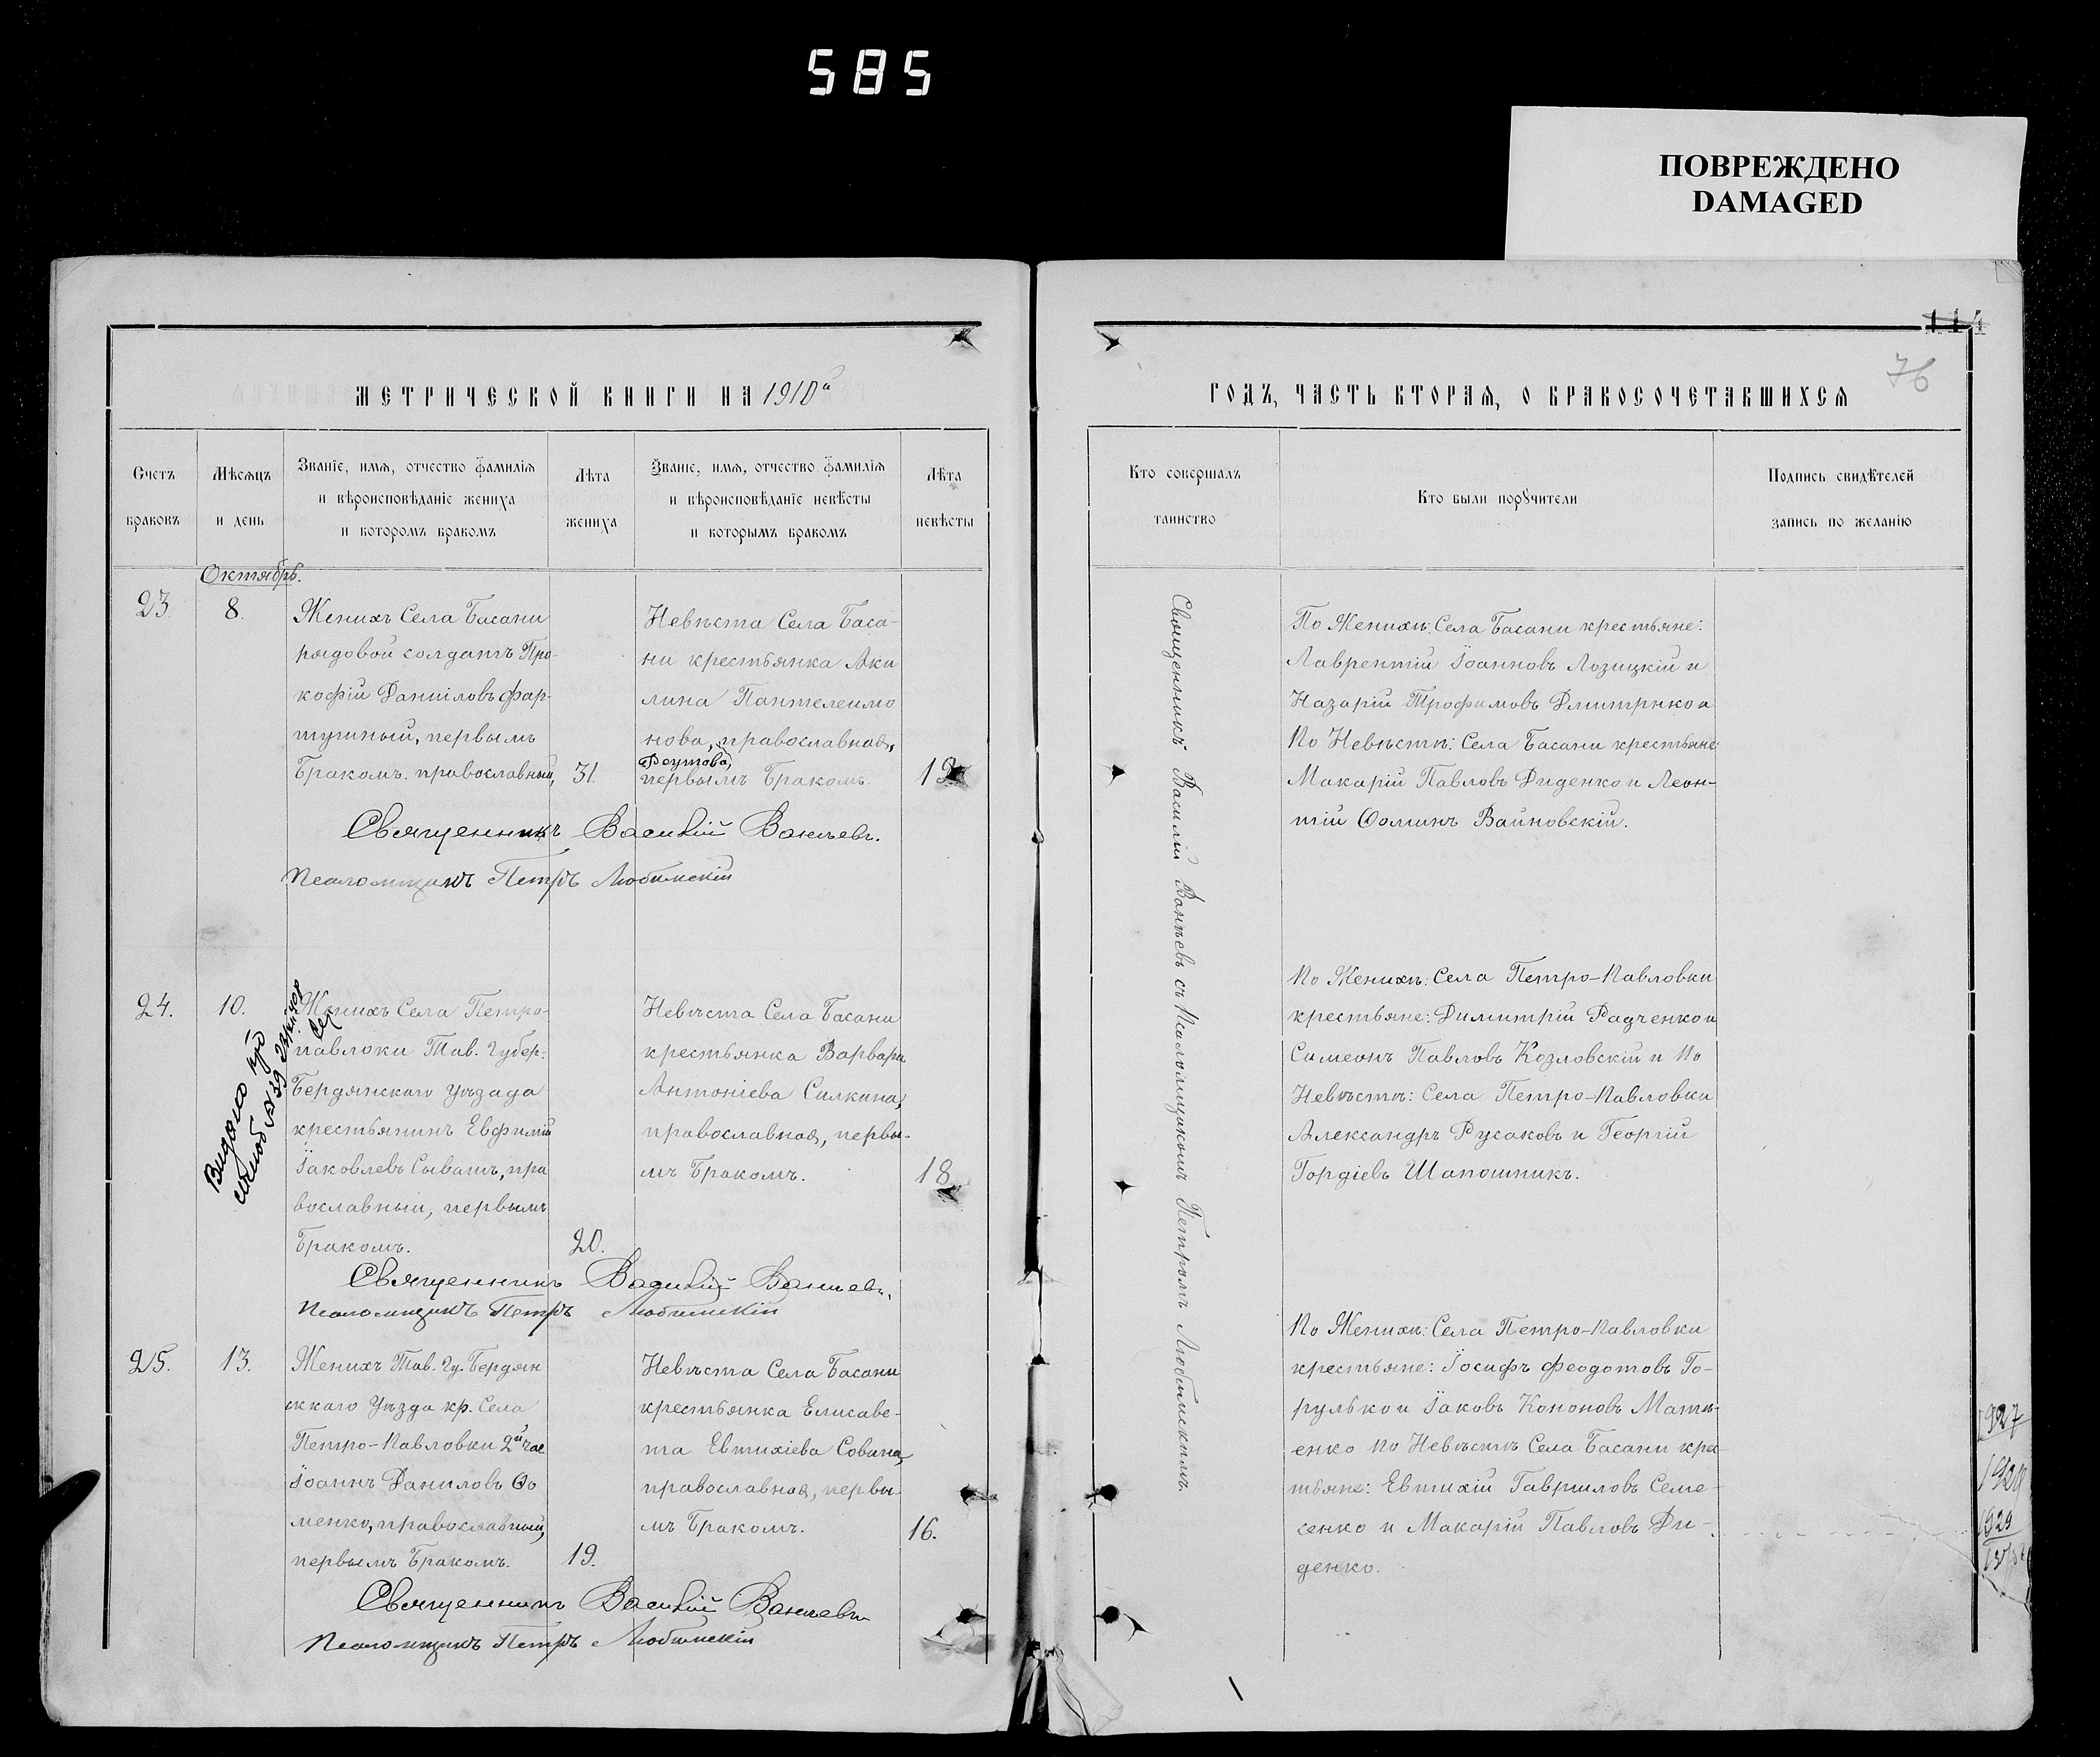 585
ПОВРЕЖДЕНО
DAMAGED
114
76
МЕТРИЧЕСКОЙ КНИГИ НА 1910й
ГОДЪ, ЧАСТЬ ВТОРАЯ, О БРАКОСОЧЕТАВШИХСЯ
Счетъ
браковъ
Мѣсяцъ
и день
Званіе, имя, отчество фамилія
и вѣроисповѣданіе жениха
и которомъ бракомъ
Лѣта
жениха
Званіе, имя, отчество фамилія
и вѣроисповѣданіе невѣсты
и которымъ бракомъ
Лѣта
невѣсты
Кто совершалъ
таинство
Кто были поручители
Подпись свидѣтелей
запись по желанію
Октябрь.
23.
8.
Женихъ Села Басани
рядовой солдатъ Про-
кофій Даніиловъ Фар-
тушный, первымъ
бракомъ. православный,
31.
Невѣста Села Баса-
ни крестьянка Аки
лина Пантелеимо
нова, православная,
Реутова,
первымъ бракомъ.
Священникъ Василій Ваньевъ.
Псаломщикъ Петръ Любимскій
Священникъ Василій Ваньевъ съ Псаломщикомъ Петромъ Любимскимъ
По Женихѣ: Села Басани крестьяне:
Лаврентій Іоанновъ Лозицкій и
Назарій Трофимовъ Дмитренко и
По Невѣстѣ: Села Басани крестьяне
Макарій Павловъ Диденко и Леон-
тій Ѳоминъ Войновскій.
24.
10.
Женихъ Села Петро-
павлоки Тав. Губер.
Бердянскаго уѣзада
крестьянинъ Евфимій
Іаковлевъ Сыватъ, пра
вославный, первымъ
бракомъ.
20.
Невѣста Села Басани
крестьянка Варвара
Антоніева Силкина,
православная, первы-
мъ бракомъ.
18.
Священникъ Василій Ваньевъ.
Псаломщикъ Петръ Любимскій
По Женихѣ: Села Петро-Павловки
крестьяне: Димитрій Радченко и
Симеонъ Павловъ Козловскій и По
Невѣстѣ: Села Петро-Павловки
Александръ Русаковъ и Георгій
Гордіевъ Шапошникъ.
25.
13.
Женихъ Тав. Гу. Бердян
скаго Уѣзда кр. Села
Петро-Павловки 2й час
Іоаннъ Даниловъ Ѳо
менко, православный,
первымъ бракомъ.
19.
Невѣста Села Басани
крестьянка Елисаве-
та Евтихіева Совина,
православная, первы-
мъ бракомъ.
16.
Священникъ Василій Ваньевъ
Псаломщикъ Петръ Любимскій
По Женихѣ: Села Петро-Павловки
крестьяне: Іосифъ Феодотовъ Го-
рулько и Іаковъ Кононовъ Матвѣ-
енко по Невѣстѣ Села Басани кре-
тьяне: Евтихій Гавриловъ Семе-
сенко и Макарій Павловъ Ди-
денко.
1927
1929